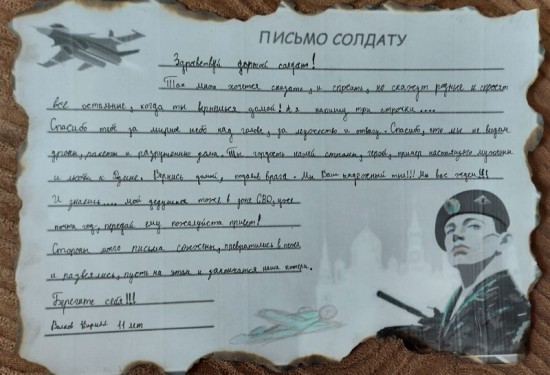 ПИСЬМО СОЛДАТУ
Здравствуй дорогой солдат!
Так много хочется сказать, и спросить, но скажут родные и спросят
все остальные, когда ты вернёшься домой! А я напишу три строчки....
Спасибо тебе за мирное небо над голове, за мужество и отвагу. Спасибо, что мы не видим
дронов, ракеты и разрушенные дома. Ты гордость нашей страны, герой, пример настоящего мужчины
и любви к Родине. Вернись домой, победив врага. Мы Ваш надежный тыл!!! Мы вас ждем!!!
И знаешь.... мой дедушка тоже в зоне СВО, уже
почти год, передай ему пожалуйста привет!
Стороны моего письма сожжены, превратились в пепел
и развеялись, пусть на этом и закончатся наши потери.
Берегите себя!!!
Волков Кирилл 11 лет